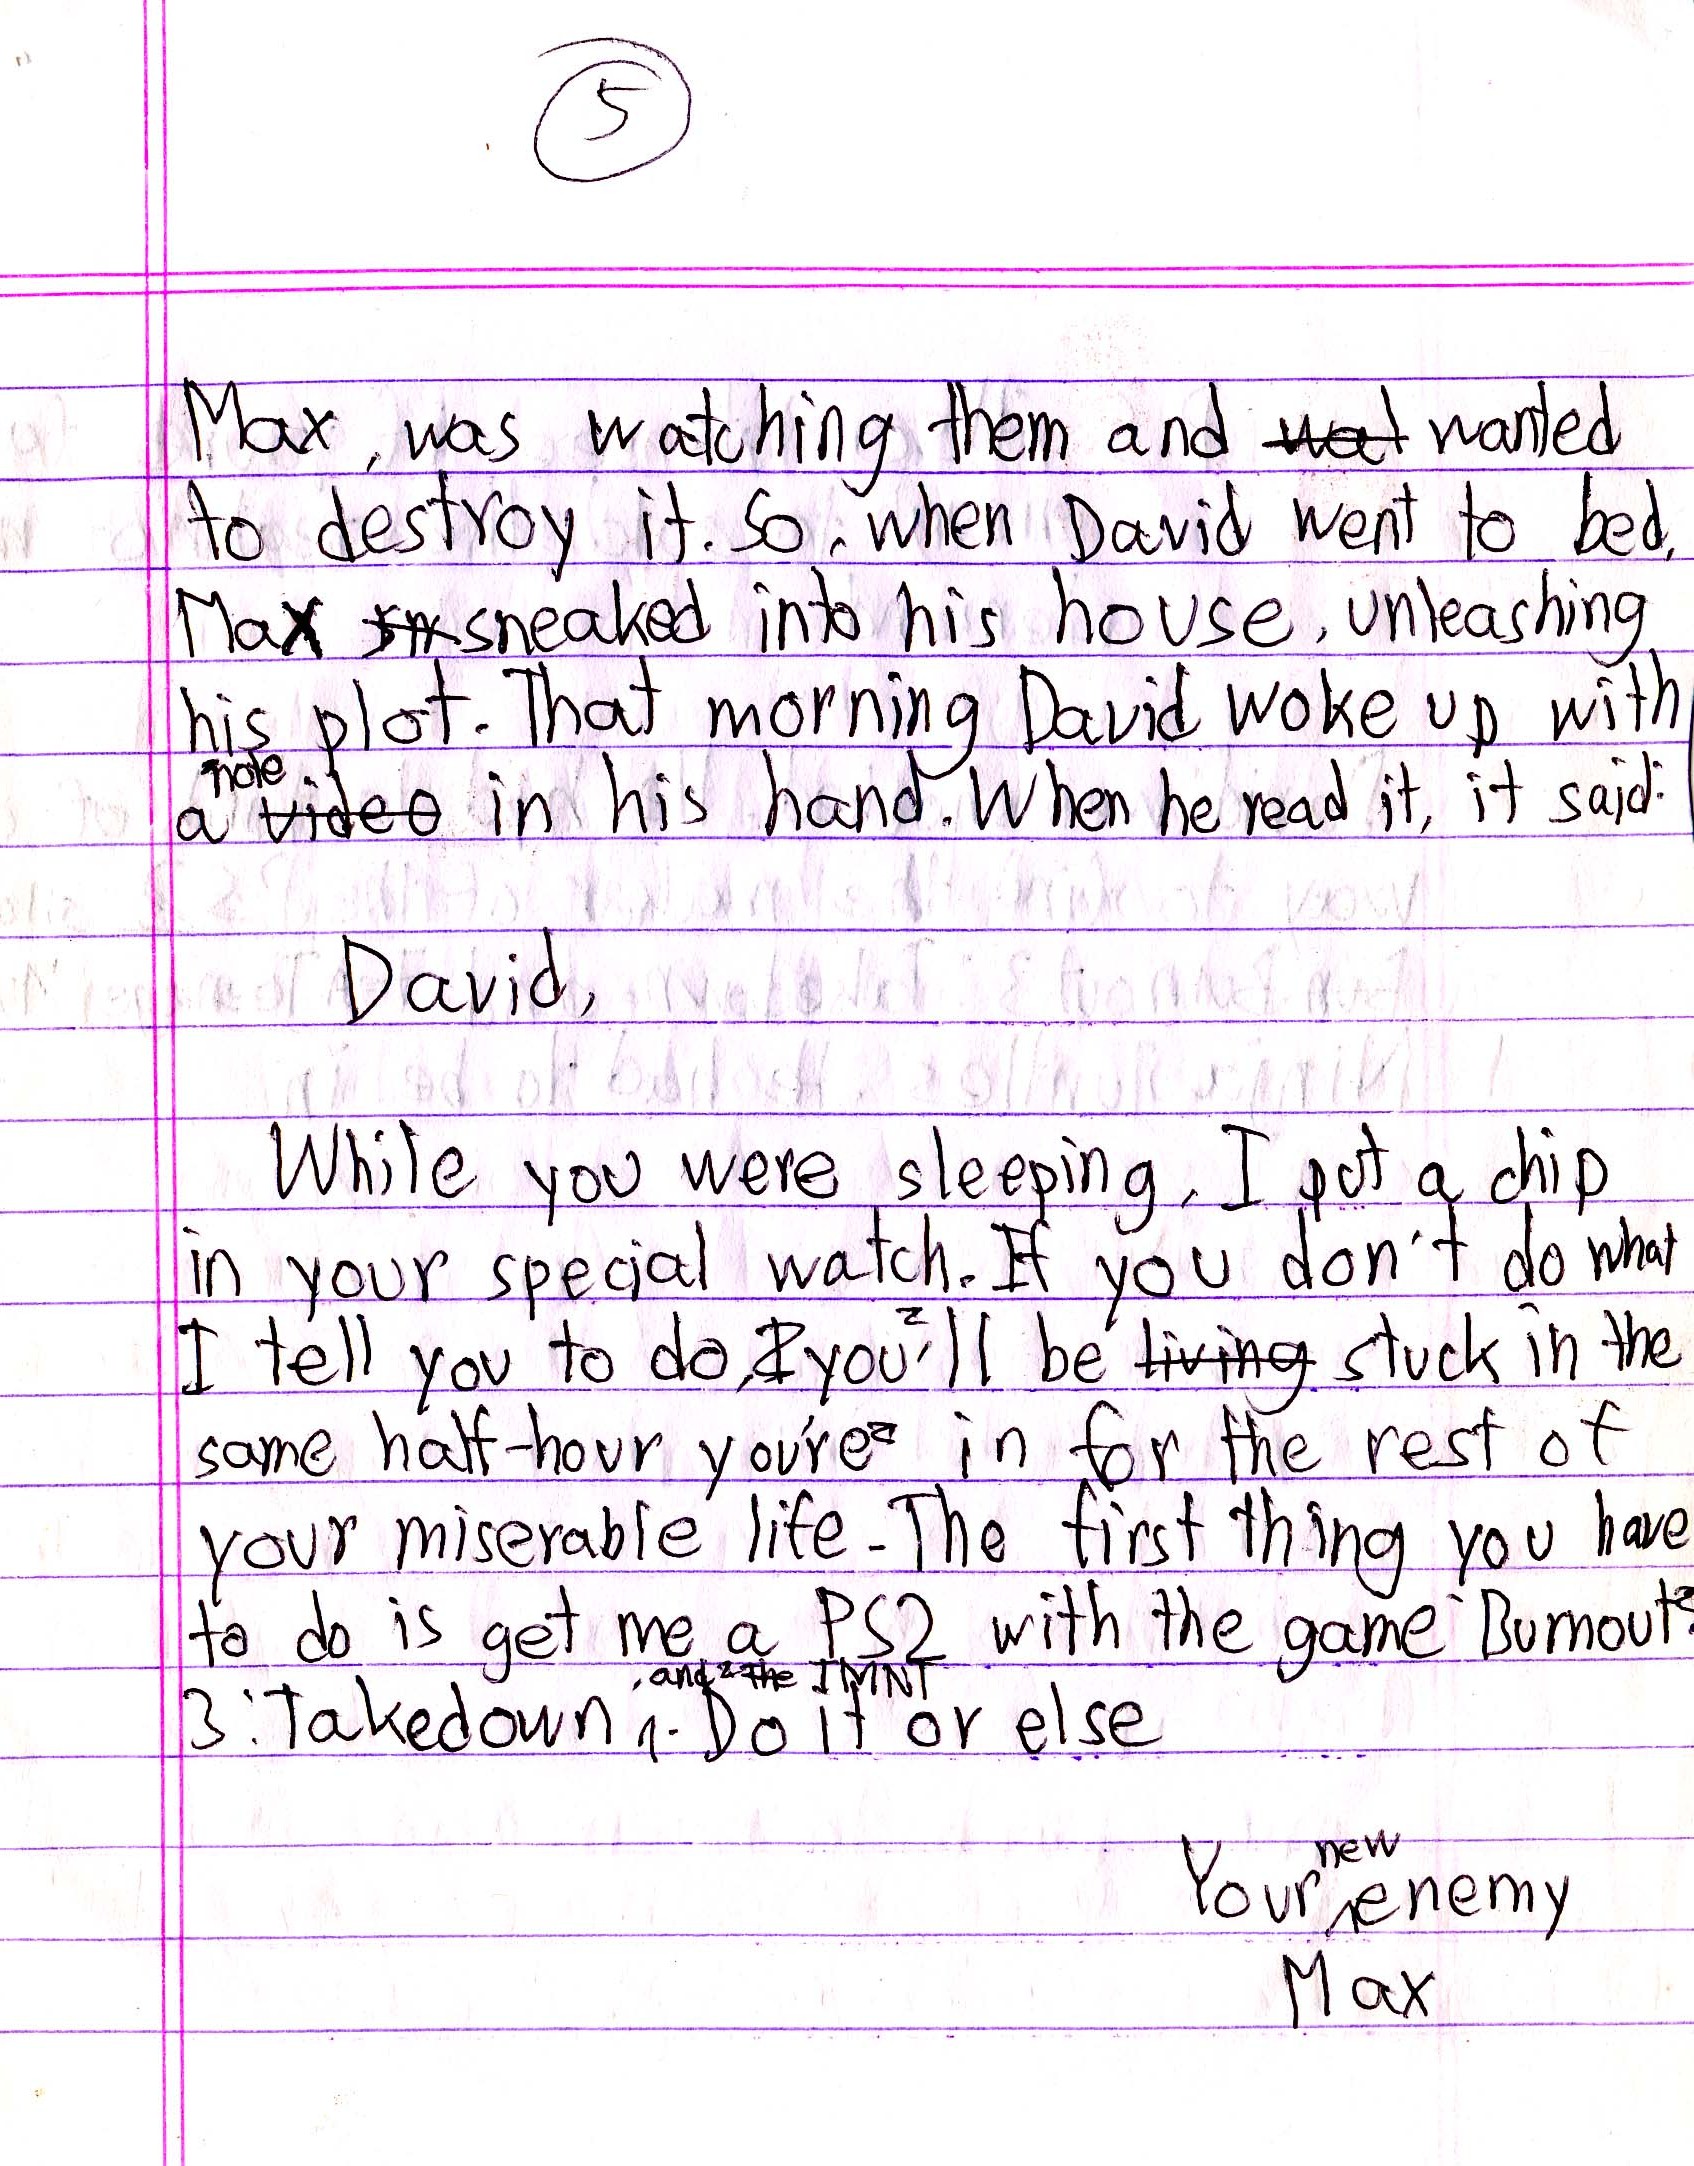 5
Max, was watching them and ~~wat~~ wanted
to destroy it. So, when David went to bed,
Max ~~sn~~ sneaked into his house, unleashing
his plot. That morning David woke up with
note
a ~~video~~ in his hand. When he read it, it said:
David,
While you were sleeping, I put a chip
in your special watch. If you don't do what
I tell you to do, ~~I~~ you'll be ~~living~~ stuck in the
same half-hour you're in for the rest of
your miserable life. The first thing you have
to do is get me a PS2 with the game Burnout
, and ~~the~~ TMNT
3: Takedown ^. Do it or else
new
Your ^ enemy
Max